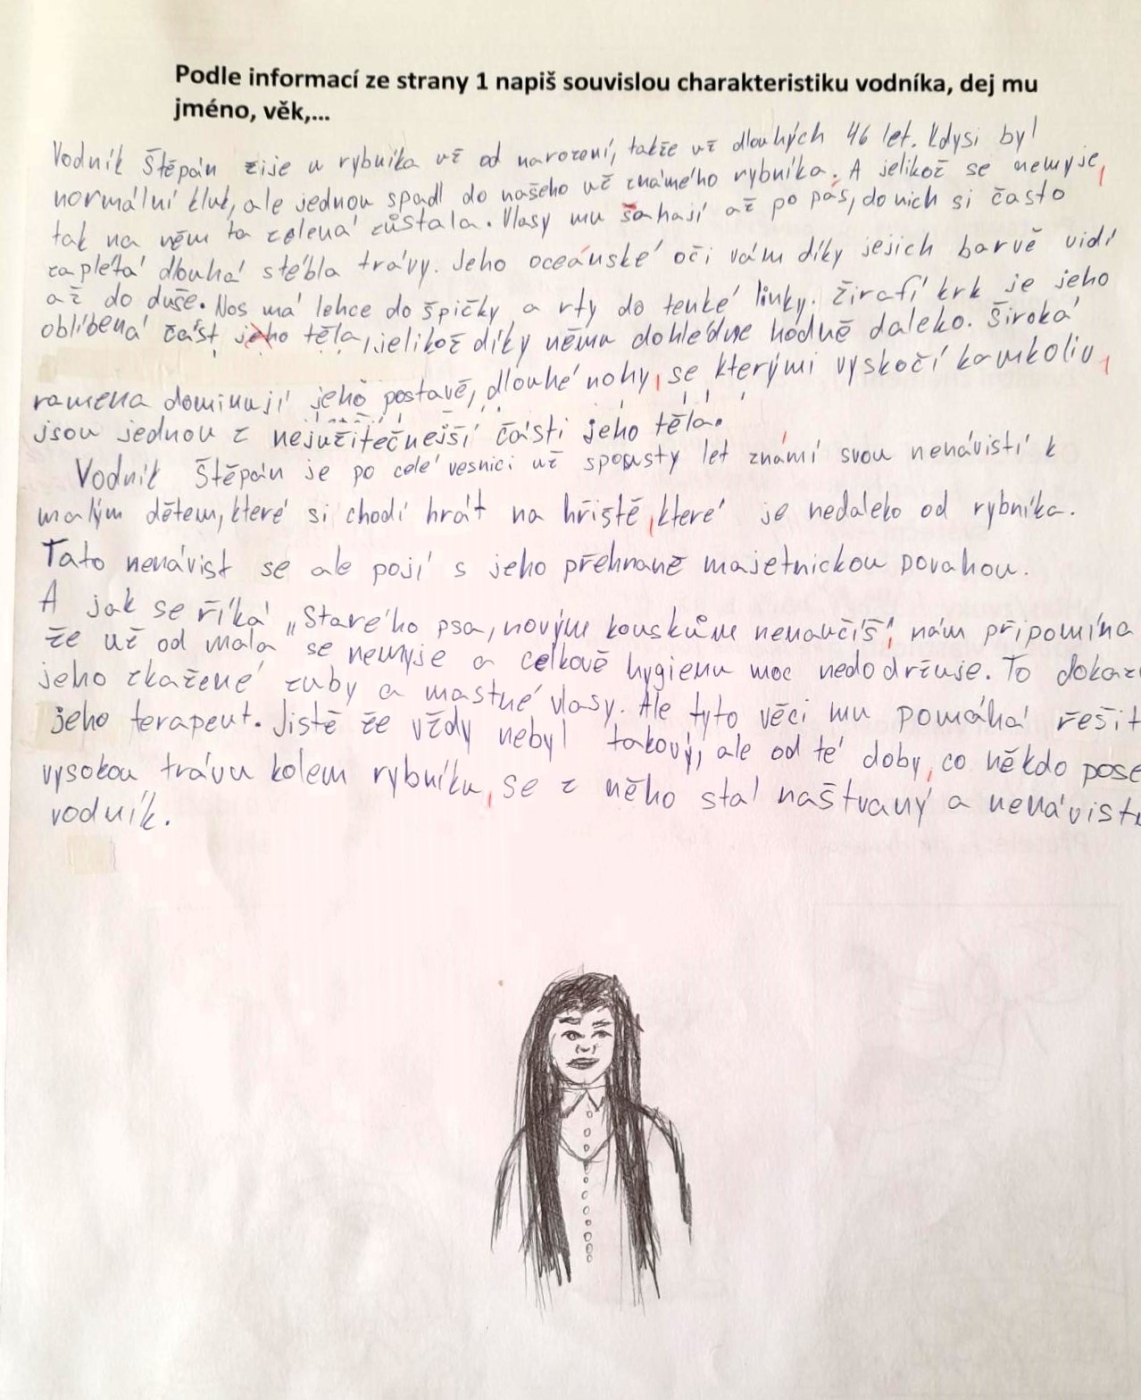 Podle informací ze strany 1 napiš souvislou charakteristiku vodníka, dej mu
jméno, věk,...
Vodník Štěpán žije u rybníka už od narození, takže už dlouhých 46 let. Kdysi byl
normální kluk, ale jednou spadl do našeho už známého rybníka. A jelikož se nemyje,
tak na něm ta zelená zůstala. Vlasy mu sahají až po pás, do nich si často
zaplétá dlouhá stébla trávy. Jeho oceánské oči vám díky jejich barvě vidí
až do duše. Nos má lehce do špičky a rty do tenké linky. Žirafí krk je jeho
oblíbená část jeho těla, jelikož díky němu dohlédne hodně daleko. Široká
ramena dominují jeho postavě, dlouhé nohy, se kterými vyskočí kamkoliv,
jsou jednou z nejužitečnejší částí jeho těla.
Vodník Štěpán je po celé vesnici už spousty let známí svou nenávistí k
malým dětem, které si chodí hrát na hřistě, které je nedaleko od rybníka.
Tato nenávist se ale pojí s jeho přehnaně majetnickou povahou.
A jak se říká „Starého psa, novým kouskům nenaučíš", nám připomíná
že už od mala se nemyje a celkově hygienu moc nedodržuje. To dokazu
jeho zkažené zuby a mastné vlasy. Ale tyto věci mu pomáhá řešit
jeho terapeut. Jistě že vždy nebyl takový, ale od té doby, co někdo pose
vysokou trávu kolem rybníku, se z něho stal naštvaný a nenávistn
vodník.